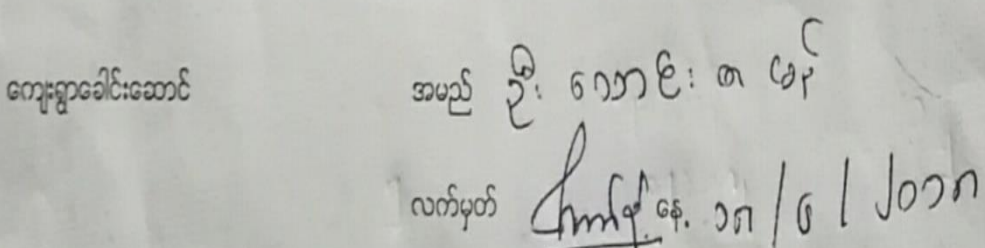 ကျေးရွာခေါင်းဆောင် အမည် ဦး
လက်မှတ် နေ့. ၁၈/၆/၂၀၁၈